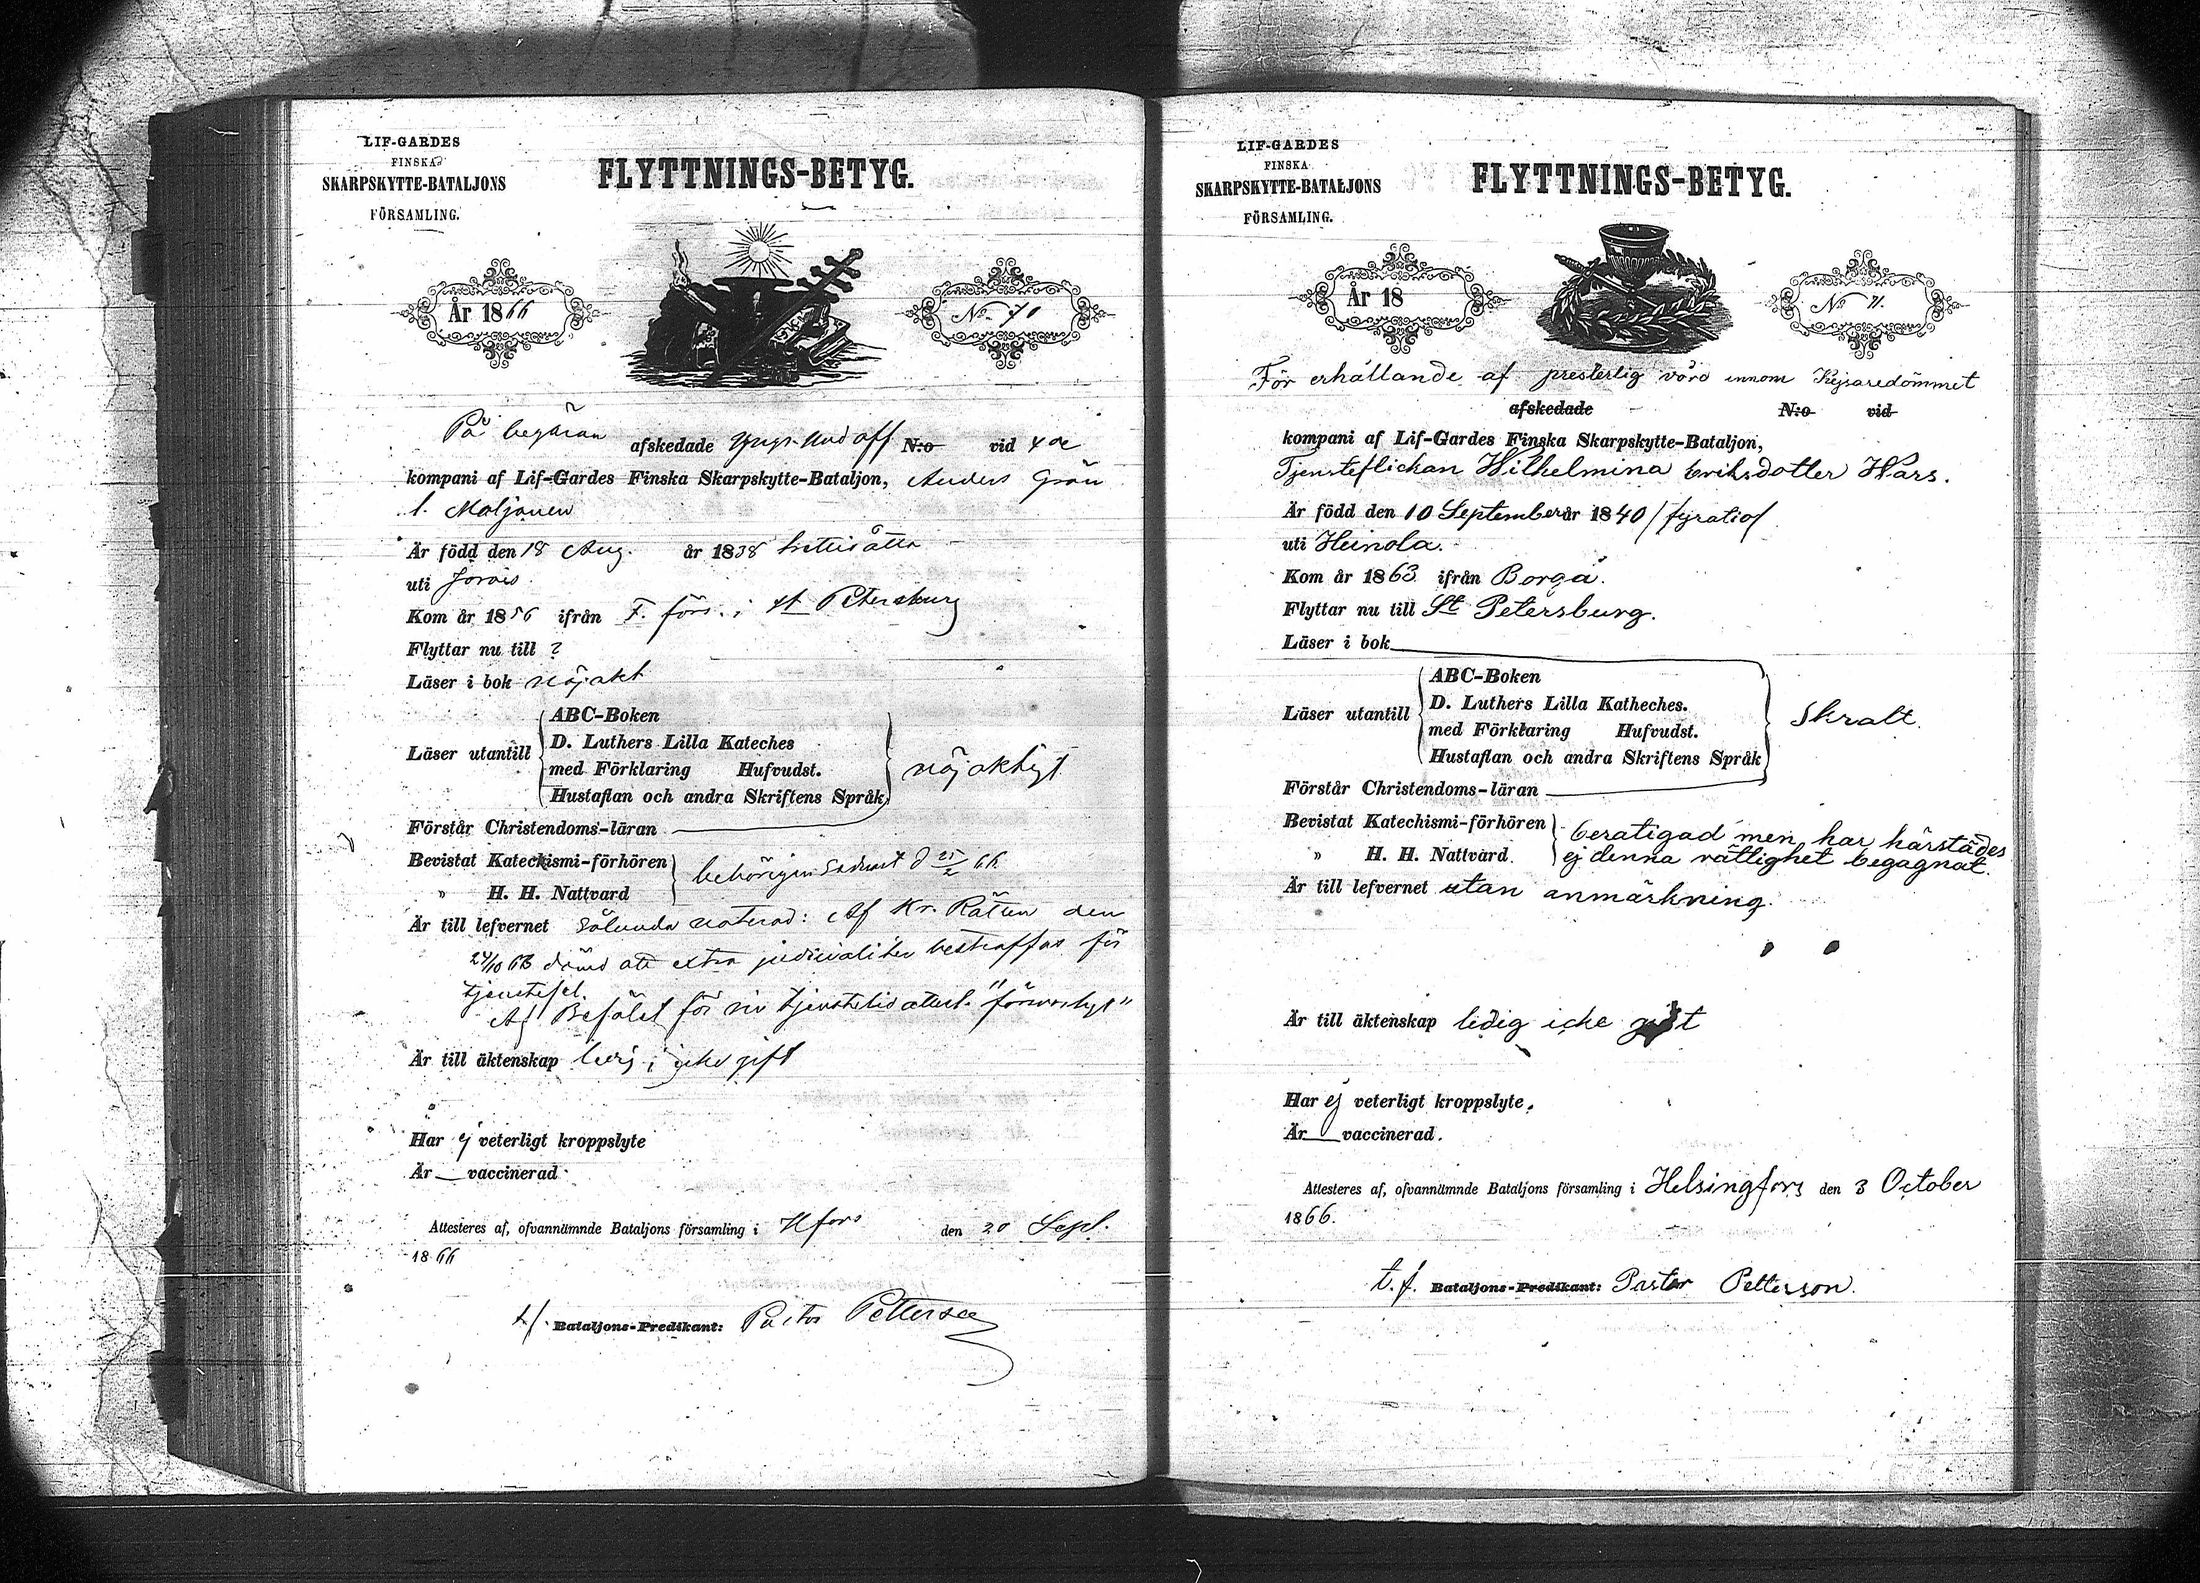 LIF-GARDES
FINSKA
SKARPSKYTTE-BATALJONS
FÖRSAMLING.
FLYTTNINGS-BETYG.
År 1866
No 70
På begäran afskedade N:o vid 4de
kompani af Lif-Gardes Finska Skarpskytte-Bataljon, Anders Grön
f. Moljanen
Är född den 18 Aug. år 1838 trettiåtta
uti Jorois
Kom år 1856 ifrån F. förs. i St Petersburg
Flyttar nu till ?
Läser i bok nöjakt
Läser utantill
ABC-Boken
D. Luthers Lilla Kateches
med Förklaring Hufvudst.
Hustaflan och andra Skriftens Språk
nöjaktigt
Förstår Christendoms-läran
Bevistat Katechismi-förhören
" H. H. Nattvard
behörigen 66
Är till lefvernet sålunda noterad: Af Kr. Rätten den
dömd att extra judicialiter bestraffas för
tjenstefel.
Af Befälet för sin tjenstetid attest.
Är till äktenskap ledig, icke gift
Har ej veterligt kroppslyte
Är vaccinerad
Attesteres af, ofvannämnde Bataljons församling i Hfors den 20 Sept.
1866
t.f. Bataljons-Predikant: Pastor Petterson
LIF-GARDES
FINSKA
SKARPSKYTTE-BATALJONS
FÖRSAMLING.
FLYTTNINGS-BETYG.
År 18
No 71.
För erhållande af presterlig vård innom Kejsaredömmet
afskedade N:o vid
kompani af Lif-Gardes Finska Skarpskytte-Bataljon,
Tjensteflickan Wilhelmina Eriksdotter Wars.
Är född den 10 September år 1840 /fyratio/
uti Heinola.
Kom år 1863 ifrån Borgå.
Flyttar nu till St Petersburg.
Läser i bok
Läser utantill
ABC-Boken
D. Luthers Lilla Katheches.
med Förklaring Hufvudst.
Hustaflan och andra Skriftens Språk
Skralt.
Förstår Christendoms-läran
Bevistat Katechismi-förhören
" H. H. Nattvard
beratigad men har härstädes
ej denna rättighet begagnat.
Är till lefvernet utan anmärkning.
Är till äktenskap ledig icke gift
Har ej veterligt kroppslyte.
Är vaccinerad.
Attesteres af, ofvannämnde Bataljons församling i Helsingfors den 3 October
1866.
t.f. Bataljons-Predikant: Pastor Petterson.